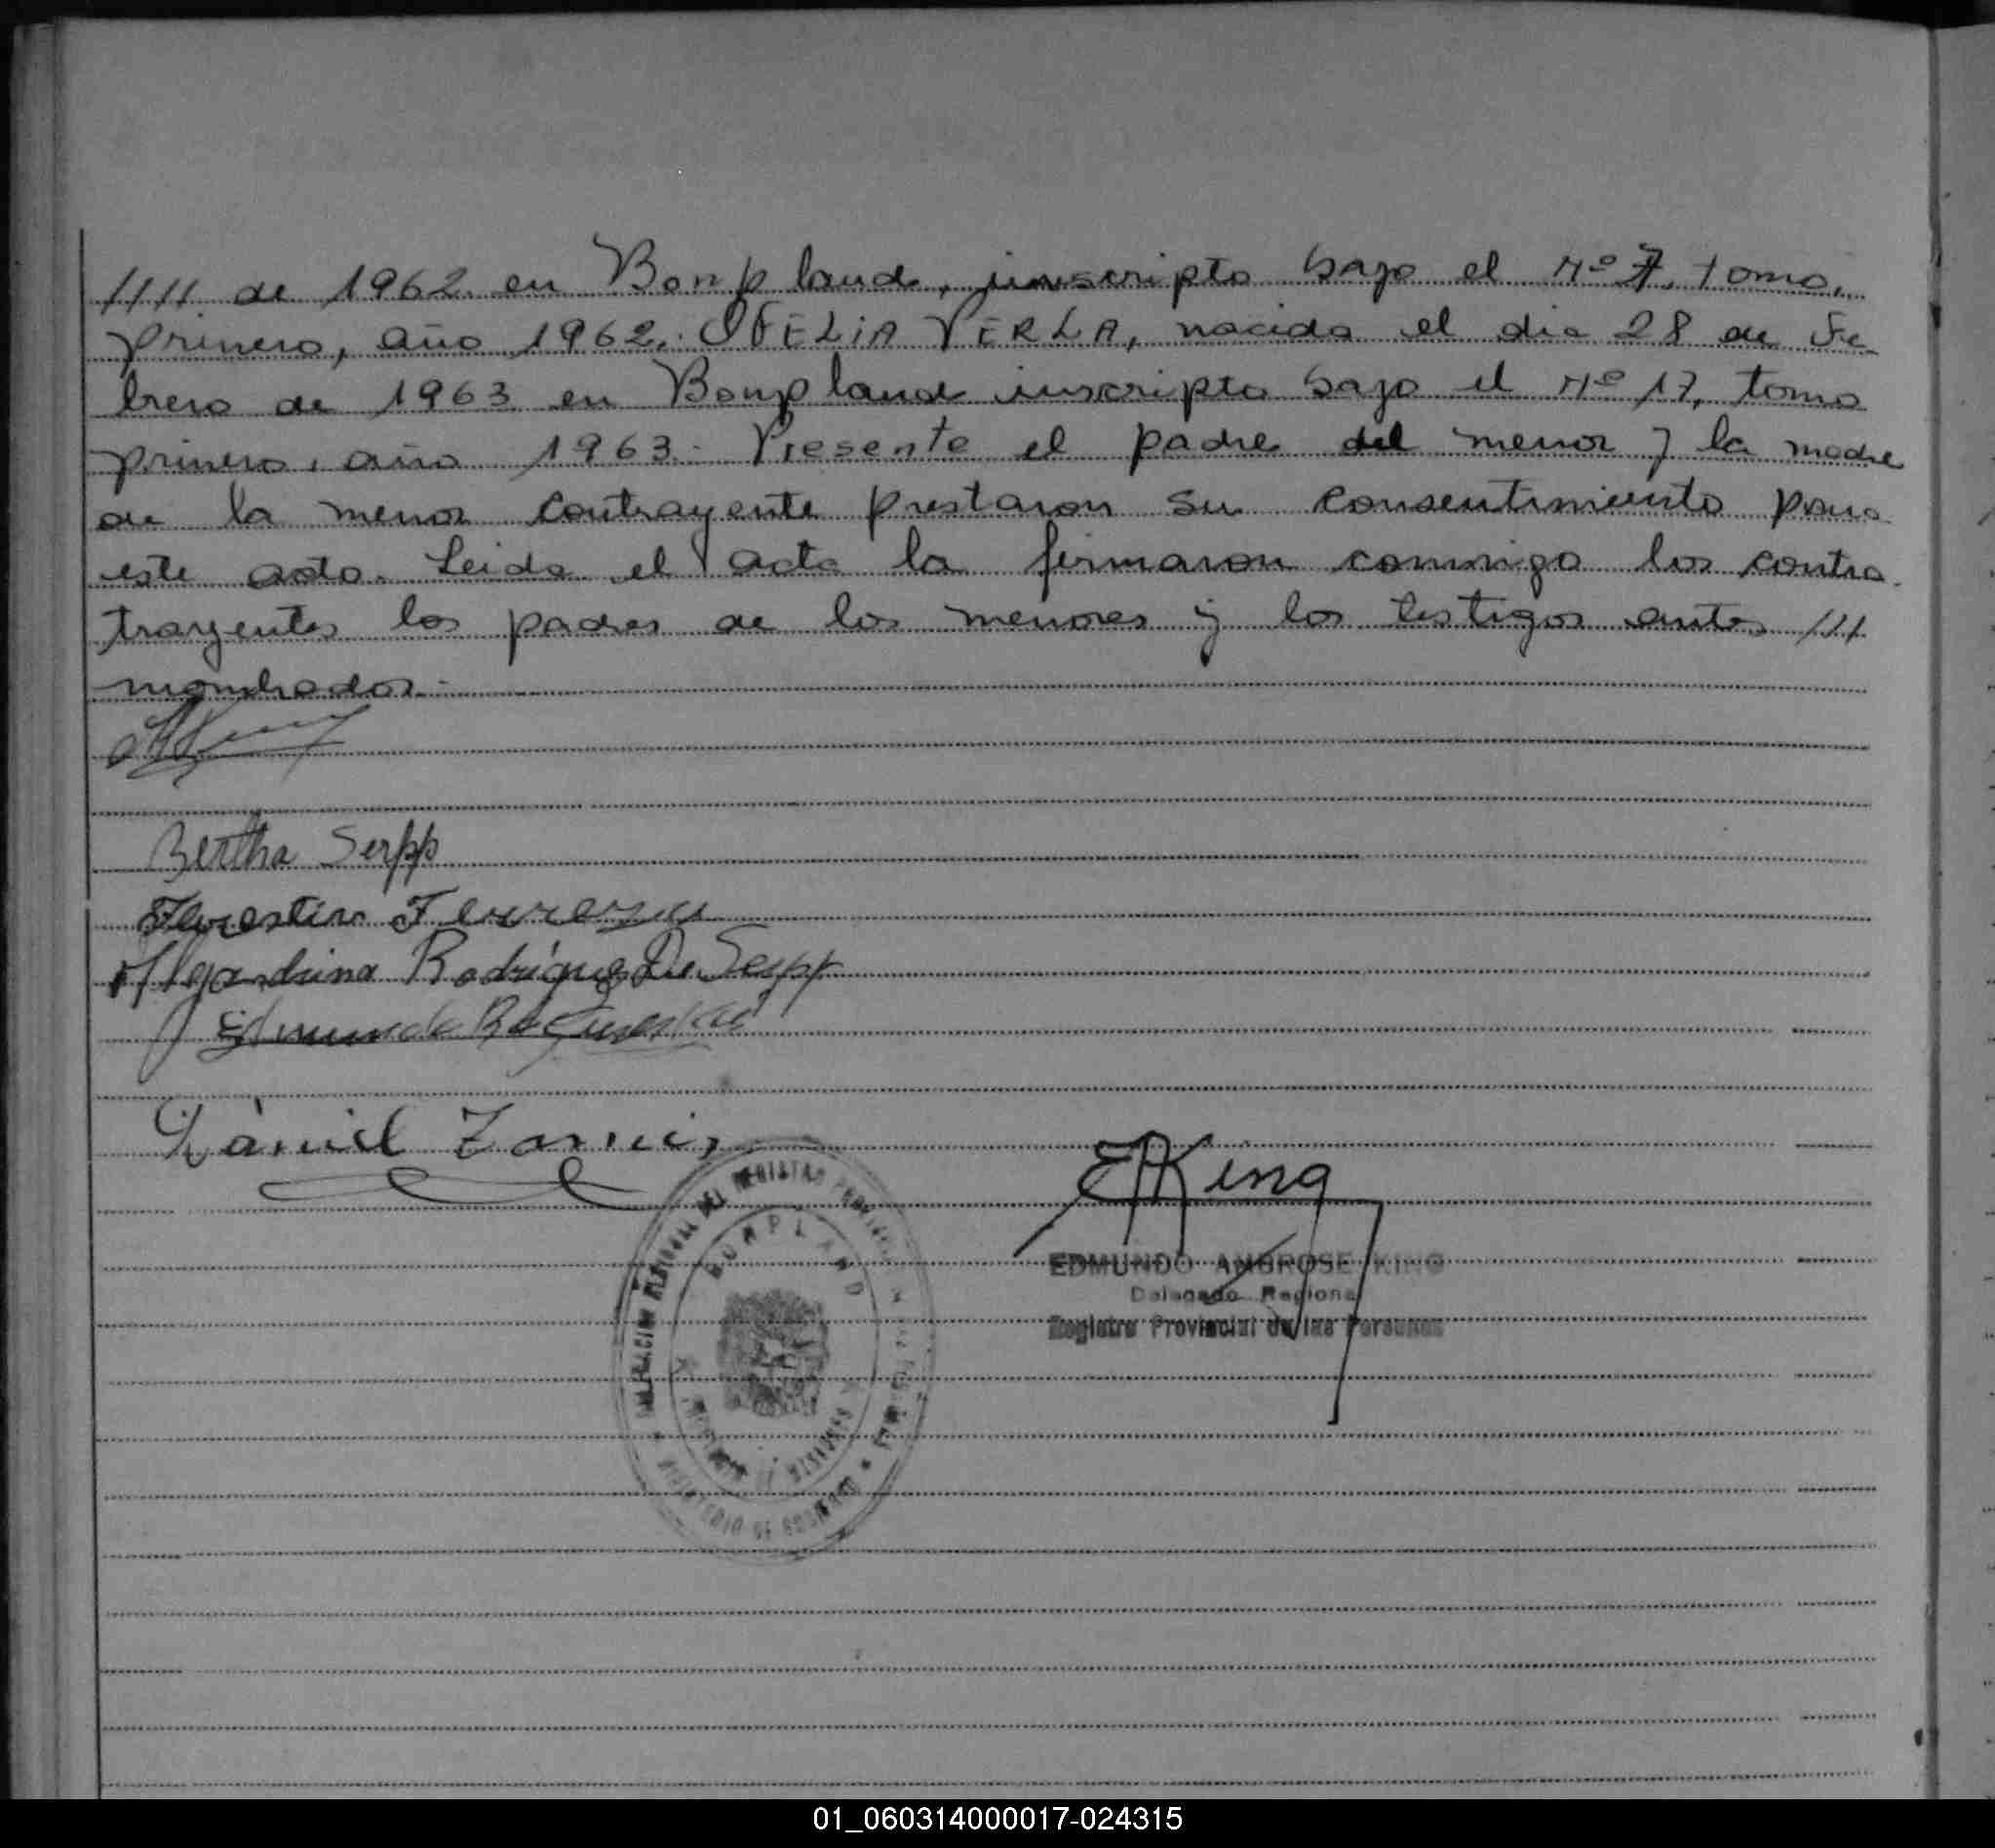 //// de 1962 en Bonpland, inscripto bajo el Nº 7, tomo,
primero, año 1962.- OFELIA PERLA, nacida el dia 28 de Fe-
brero de 1963 en Bonpland inscripta bajo el Nº 17, tomo
primero, año 1963.- Presente el padre del menor y la madre
de la menor contrayente prestaron su consentimiento para
este acto. Leida el acta la firmaron conmigo los contra-
trayentes los padres de los menores y los testigos antes ///
nombrados.-
Bertha Serpp
Florestino Ferreyra
Alejandrina Rodrigues De Serpp
Edmundo
Daniel
EAKing
EDMUNDO AMBROSE KING
Delegado Regional
Registro Provincial de las Personas
DEL REGISTRO PROVINCIAL
BONPLAND
MISIONES
MINISTERIO DE GOBIERNO
01_060314000017-024315